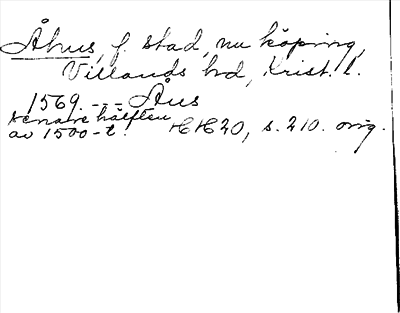 Åhus, f. stad, nu köping,
Villands hd, Krist. l.
1569. --- Åus
senare hälften
av 1500-t. HH20, s. 210. orig.